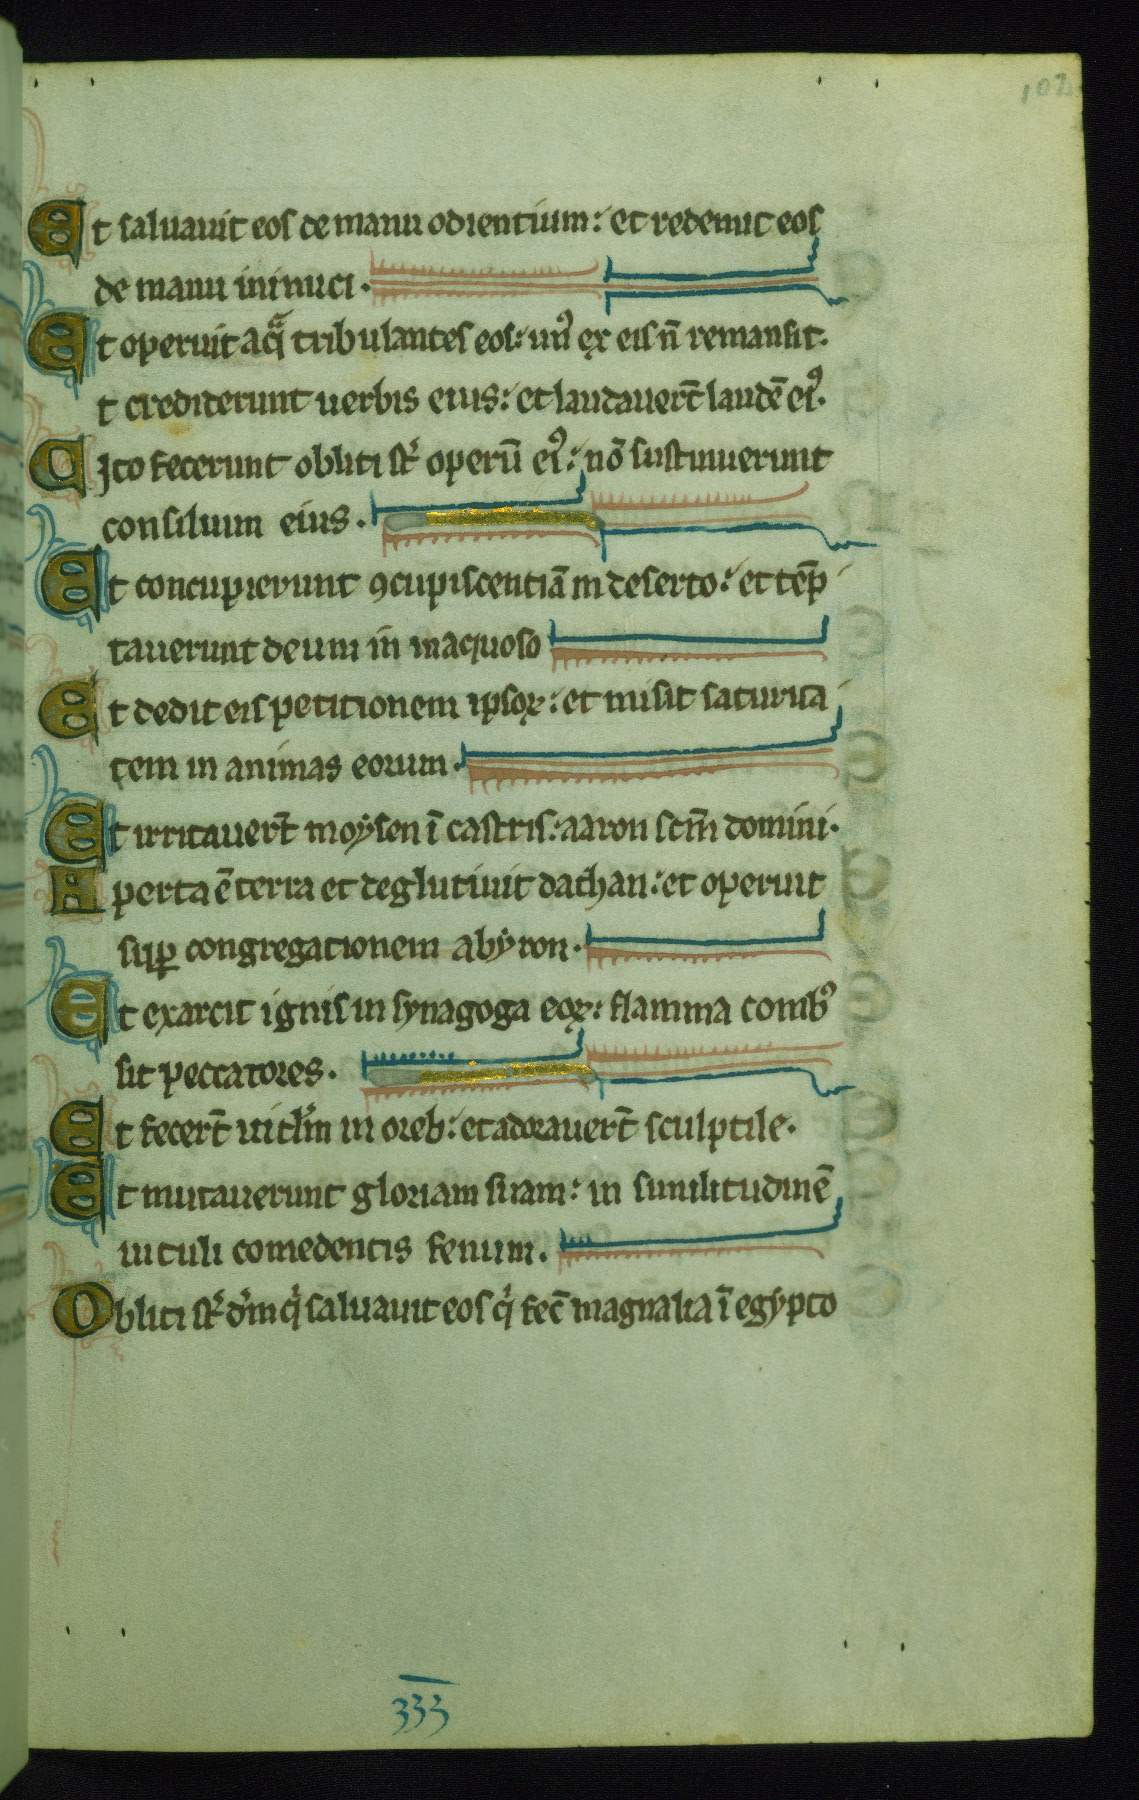 102
Et saluauit eos de manu odientium: et redemit eos
de manu inimici.
Et operuit aq̃ tribulantes eos: un⁹ ex eis ñ remansit.
t crediderunt uerbis eius: et laudauert̄ laudē ei⁹.
Cito fecerunt obliti st̄ operū ei⁹: nō sustinuerunt
consilium eius.
Et concupierunt ꝯcupiscentiā in deserto: et tēp
tauerunt deum in inaquoso
Et dedit eis petitionem ipsoꝝ: et misit saturita
tem in animas eorum.
Et irritauert̄ moysen ī castris: aaron scm̄ domini.
Aperta ē terra et deglutiuit dathan: et operuit
sup̱ congregationem abyron.
Et exarcit ignis in synagoga eoꝝ: flamma comb⁹
sit peccatores.
Et fecert̄ uitl̄m in oreb: et adorauert̄ sculptile.
Et mutauerunt gloriam suam: in similitudinē
uituli comedentis fenum.
Obliti st̄ dm̄ q̇ saluauit eos q̇ fec̄ magnalia ī egypto
333